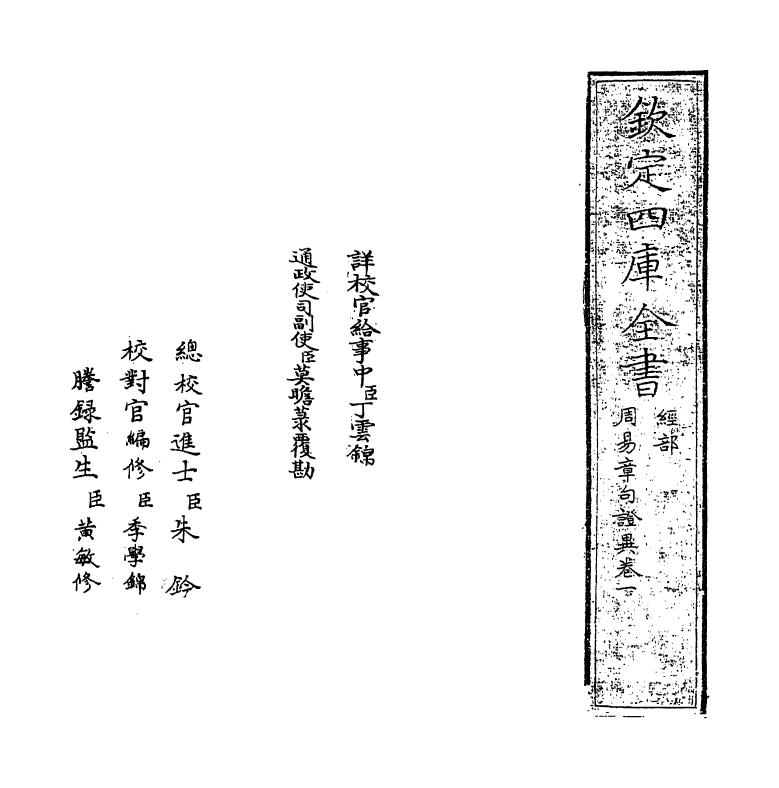 欽定四庫全書
經部
周易章句證異卷一
詳校官給事中臣丁雲錦
通政使司副使臣莫瞻菉覆勘
總校官進士臣朱鈐
校對官編修臣季學錦
謄録監生臣黃敏修